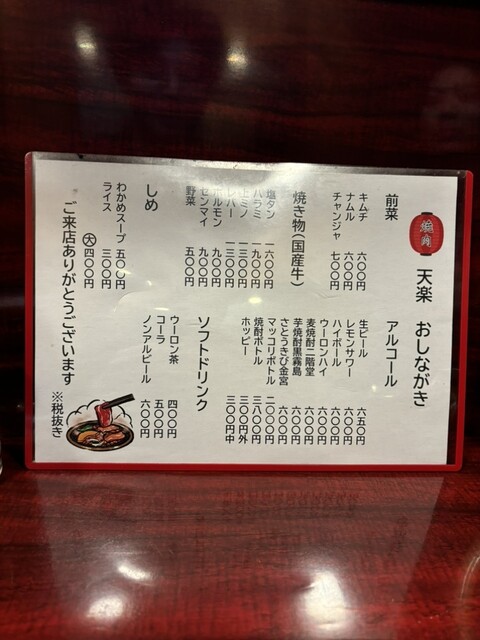 焼肉
天楽 おしながき
前菜
キムチ 六〇〇円
ナムル 六〇〇円
チャンジャ 七〇〇円
焼き物(国産牛)
塩タン 一六〇〇円
ハラミ 一九〇〇円
上ミノ 一三〇〇円
レバー 一三〇〇円
ホルモン 九〇〇円
センマイ 九〇〇円
野菜 五〇〇円
しめ
わかめスープ 五〇〇円
ライス 三〇〇円
㊛四〇〇円
アルコール
生ビール 六五〇円
レモンサワー 六〇〇円
ハイボール 六〇〇円
ウーロンハイ 六〇〇円
麦焼酎二階堂 六〇〇円
芋焼酎黒霧島 六〇〇円
さとうきび金宮 六〇〇円
マッコリボトル 二〇〇〇円
焼酎ボトル 三八〇〇円
ホッピー 三〇〇円外
三〇〇円中
ソフトドリンク
ウーロン茶 四〇〇円
コーラ 五〇〇円
ノンアルビール 六〇〇円
ご来店ありがとうございます
※税抜き